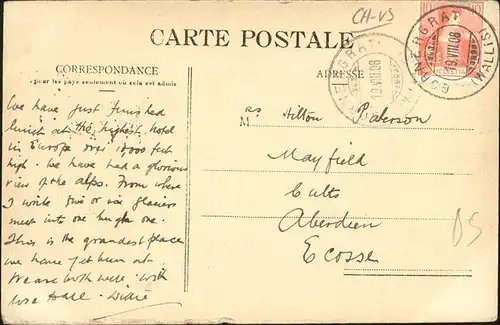 CH-VS
CARTE POSTALE
CORRESPONDANCE
pour les pays seulement où cela est admis
ADRESSE
10
10
HELVETIA
GORNERGRAT
(WALLIS)
13.VIII.08
GORNERGRAT
13.VIII.08
We have just finished
lunch at the highest hotel
in Europe over 10,000 feet
high. We have had a glorious
view of the Alps. From where
I write five or six glaciers
meet into one huge one.
This is the grandest place
we have yet been at.
We are both well. With
love to all.
M
Hilton Paterson
Mayfield
Cults
Aberdeen
Ecosse
DS